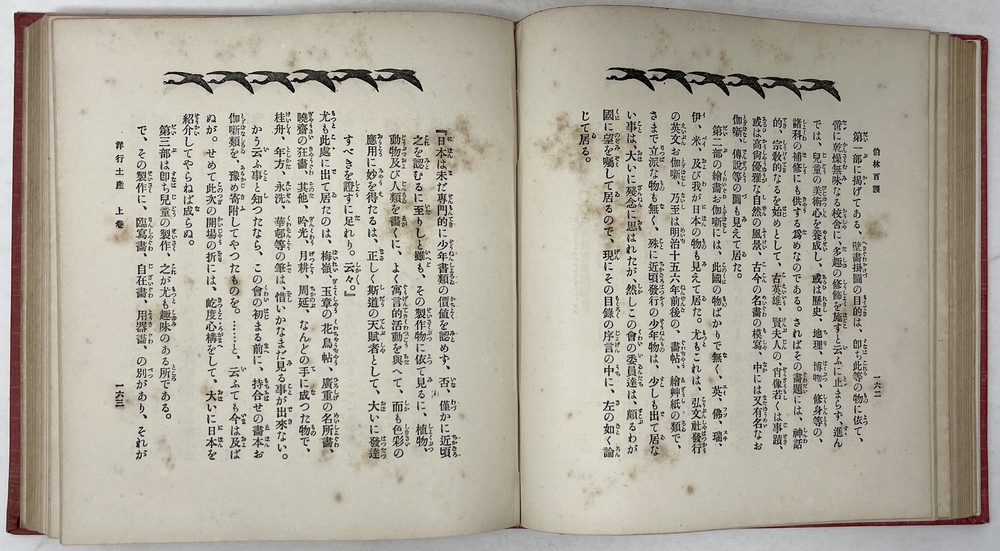 伯林百談
一六二
第一部に揭げてある、壁畫掛圖の目的は、卽ち此等の物に依て、
常に乾燥無味なる校舍に、多趣の修飾を施すと云ふに止まらず、進ん
では、兒童の美術心を養成し、或は歷史、地理、博物、修身等の、
諸科の補修にも供する爲めなのである。さればその畫題には、神話
的、宗敎的なるを始めとして、古英雄、賢夫人の肖像若くは事蹟、
或は高尙優雅な自然の風景、古今の名畫の模寫、中には又有名なお
伽噺、傳說等の圖も見えて居た。
第二部の繪畫お伽噺には、此國の物ばかりで無く、英、佛、瑞、
伊、米、及び我が日本の物も見えて居た。尤もこれは、弘文社發行
の英文お伽噺、乃至は明治十五六年前後の、畫帖、繪草紙の類で、
さまで立派な物も無く、殊に近頃發行の少年物は、少しも出て居な
い事は、大いに殘念に思はれたが、然しこの會の委員達は、頗るわが
國に望を囑して居るので、現にその目錄の序言の中に、左の如く論
じて居る。
『日本は未だ專門的に少年書類の價値を認めず、否、僅かに近頃
之を認むるに至りしと雖も、その製作物に依て見るに、植物、
動物及び人類を畫くに、よく寓言的活動を與へて、而も色彩の
應用に妙を得たるは、正しく斯道の天賦者として、大いに發達
すべきを證すに足れり。云々。』
尤も此處に出て居たのは、梅嶺、玉章の花鳥帖、廣重の名所畫、
曉齋の狂畫、其他、吟光、月耕、周延、なんどの手に成つた物で、
桂舟、年方、永洗、華邨等の筆は、惜いかなまだ見る事が出來ない。
かう云ふ事と知つたなら、この會の初まる前に、持合せの畫本お
伽噺類を、豫め寄附してやつたものを。……と、云ふても今は及ば
ぬが。せめて此次の開場の折には、屹度心構をして、大いに日本を
紹介してやらねば成らぬ。
第三部は卽ち兒童の製作、之が尤も趣味のある所である。
で、その製作に、臨寫畫、自在畫、用器畫、の別があり、それが
洋行土產 上卷
一六三